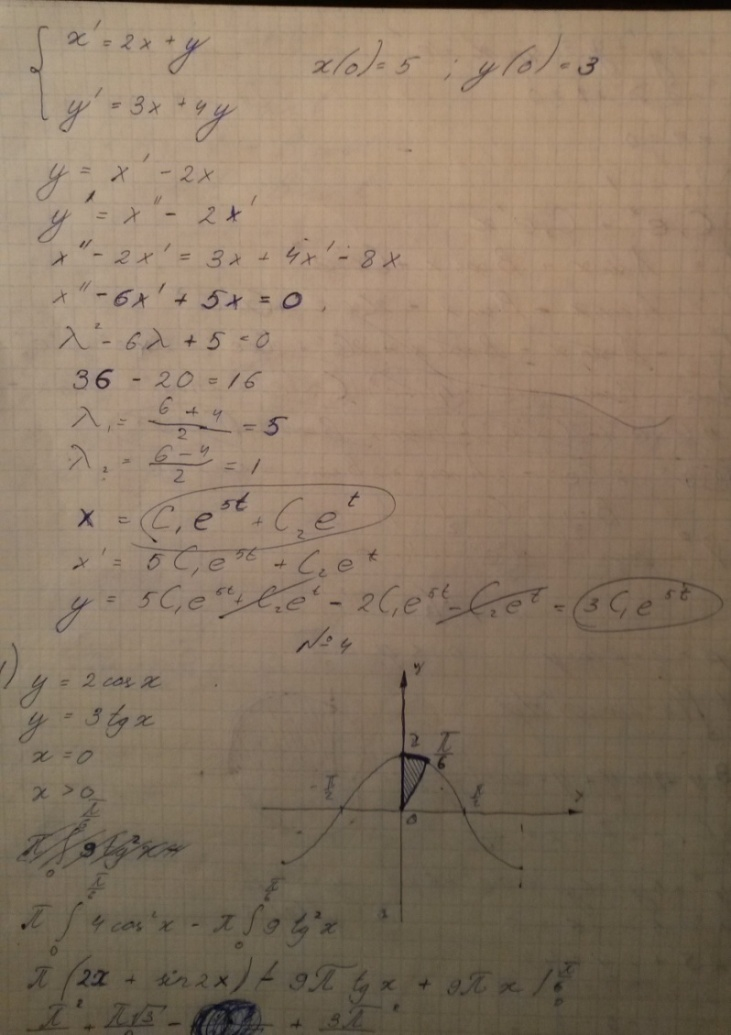 { x' = 2x + y
x(0) = 5 ; y(0) = 3
y' = 3x + 4y
y = x' - 2x
y' = x'' - 2x'
x'' - 2x' = 3x + 4x' - 8x
x'' - 6x' + 5x = 0
λ² - 6λ + 5 = 0
36 - 20 = 16
λ₁ = (6 + 4)/2 = 5
λ₂ = (6 - 4)/2 = 1
x = C₁e^{5t} + C₂e^t
x' = 5C₁e^{5t} + C₂e^t
y = 5C₁e^{5t} + C₂e^t - 2C₁e^{5t} - C₂e^t = 3C₁e^{5t}
№ 4
1) y = 2 cos x
y = 3 tg x
x = 0
x > 0
y
2
π/6
π/2
0
x
π ∫₀^{π/6} 4 cos² x - π ∫₀^{π/6} 9 tg² x
π (2x + sin 2x) - 9π tg x + 9π x |₀^{π/6}